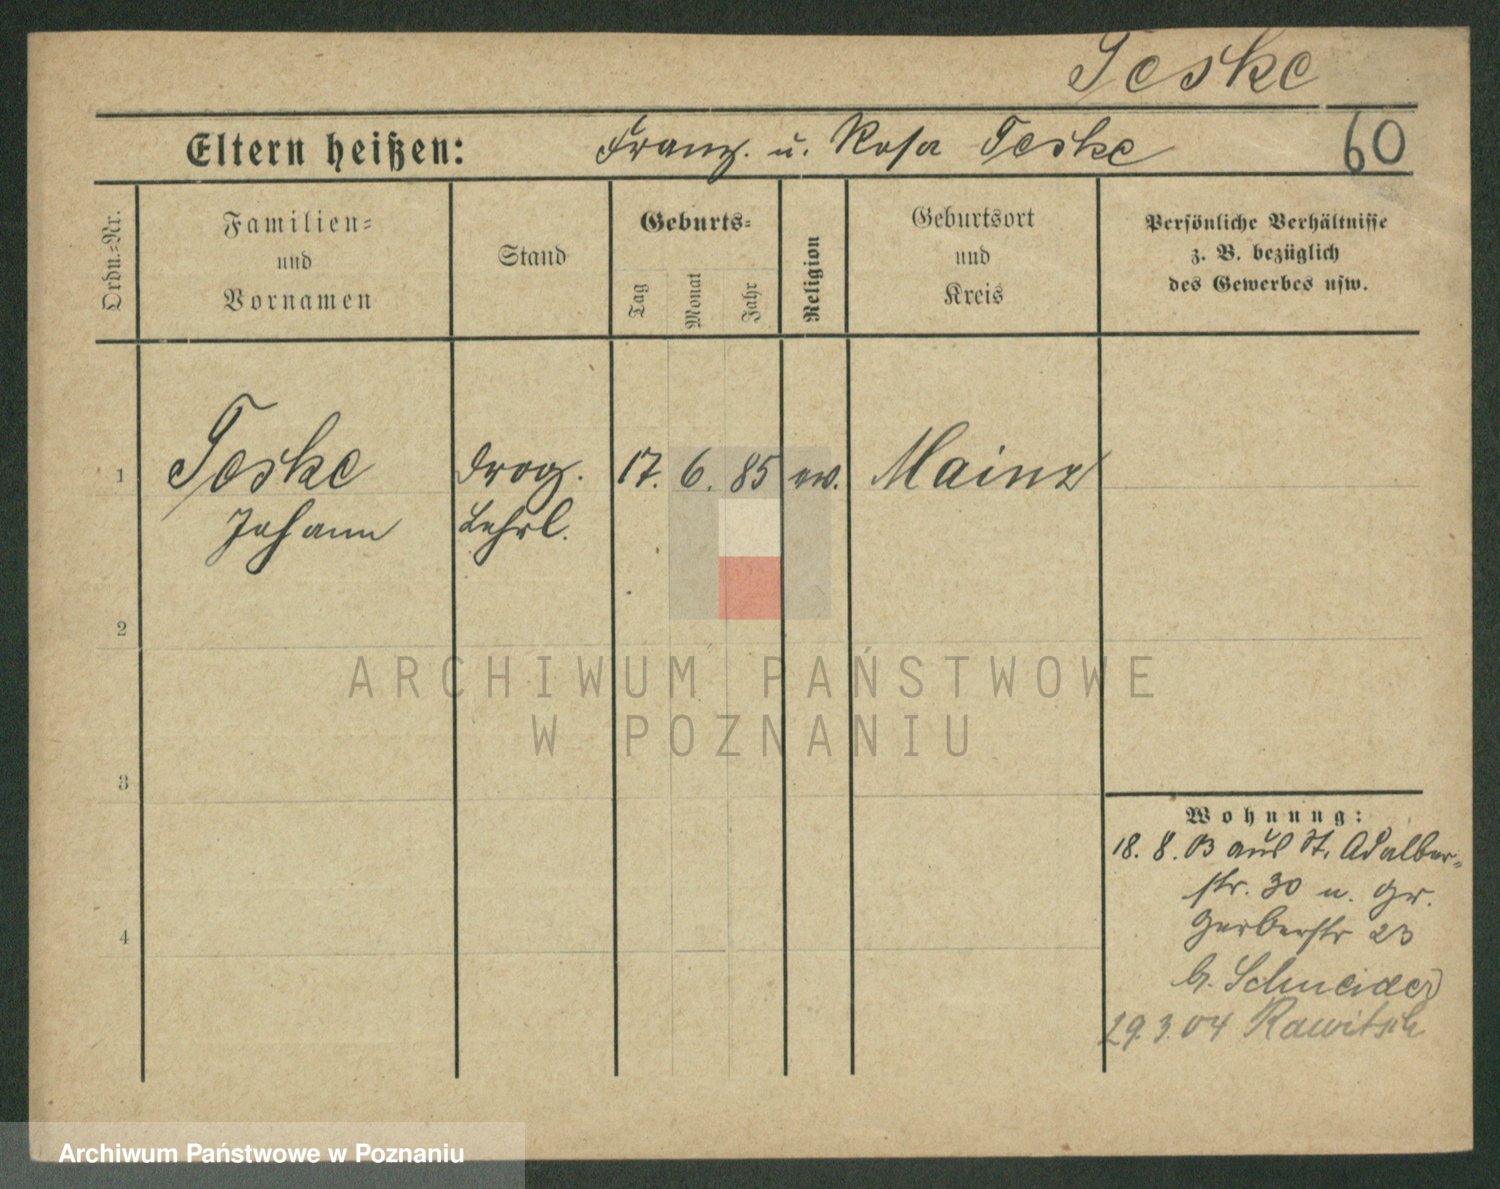 Teske
Eltern heißen: Franz. u. Rosa Teske 60
Ordn.-Nr.
Familien-
und
Vornamen
Stand
Geburts-
Tag
Monat
Jahr
Religion
Geburtsort
und
Kreis
Persönliche Verhältnisse
z. B. bezüglich
des Gewerbes usw.
1 Teske Drog. 17. 6. 85 ev. Mainz
Johann Lehrl.
2
ARCHIWUM PAŃSTWOWE
W POZNANIU
3
Wohnung:
18. 8. 03 aus St. Adalber-
str. 30 n. Gr.
4 Gerberstr 23
b. Schneider
29.3.04 Rawitsch
Archiwum Państwowe w Poznaniu